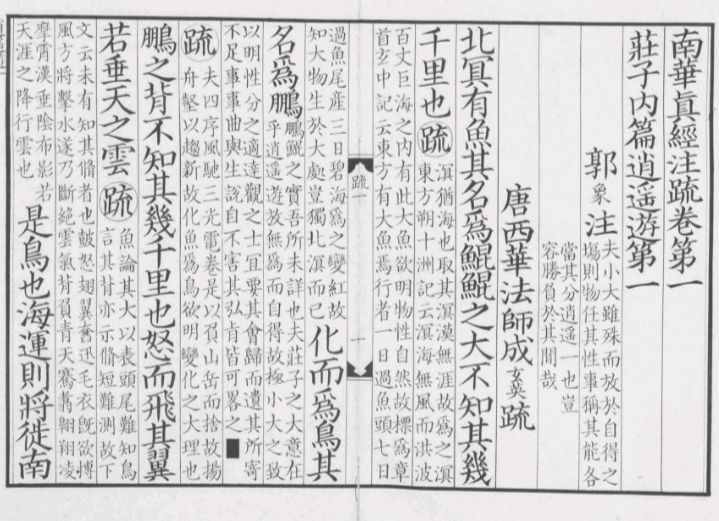 南華真經注疏卷第一
莊子内篇逍遥遊第一
郭象注
夫小大雖殊而放於自得之
塲則物任其性事稱其能各
當其分逍遥一也豈
容勝負於其閒哉
唐西華法師成玄英疏
北冥有魚其名爲鯤鯤之大不知其幾
千里也疏
溟猶海也取其溟漠無涯故爲之溟
東方朔十洲記云溟海無風而洪波
百丈巨海之内有此大魚欲明物性自然故標爲章
首玄中記云東方有大魚焉行者一日過魚頭七日
疏一
一
過魚尾産三日碧海爲之變紅故
知大物生於大處豈獨北溟而已
化而爲鳥其
名爲鵬
鵬鯤之實吾所未詳也夫莊子之大意在
乎逍遥遊放無爲而自得故極小大之致
以明性分之適達觀之士宜要其會歸而遺其所寄
不足事事曲與生說自不害其弘旨皆可畧之
疏
夫四序風馳三光電卷是以負山岳而捨故揚
舟壑以趨新故化魚爲鳥欲明變化之大理也
鵬之背不知其幾千里也怒而飛其翼
若垂天之雲疏
魚論其大以表頭尾難知鳥
言其背亦示脩短難測故下
文云未有知其脩者也皷怒翅翼奮迅毛衣既欲摶
風方將擊水遂乃斷絶雲氣背負青天騫翥翱翔凌
摩霄漢垂陰布影若
天涯之降行雲也
是鳥也海運則將徙南